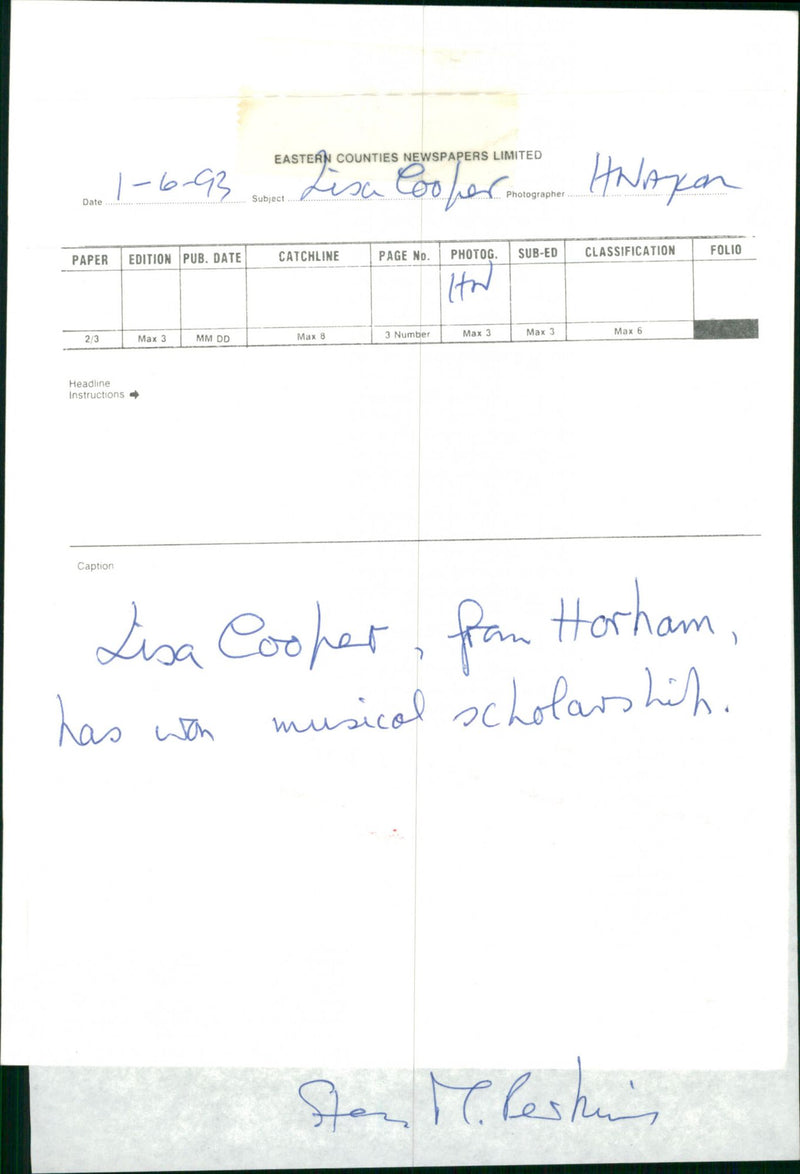 EASTERN COUNTIES NEWSPAPERS LIMITED
Date 1-6-93 Subject Lisa Cooper Photographer
PAPER EDITION PUB. DATE CATCHLINE PAGE No. PHOTOG. SUB-ED CLASSIFICATION FOLIO
HW
2/3 Max 3 MM DD Max 8 3 Number Max 3 Max 3 Max 6
Headline
Instructions
Caption
Lisa Cooper, from Horham,
has won musical scholarship.
M. Perkins